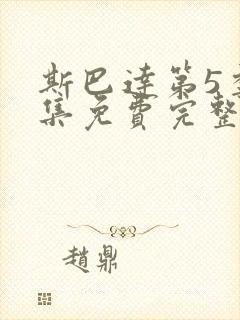 斯巴达第5季
集免费完整
趙鼎